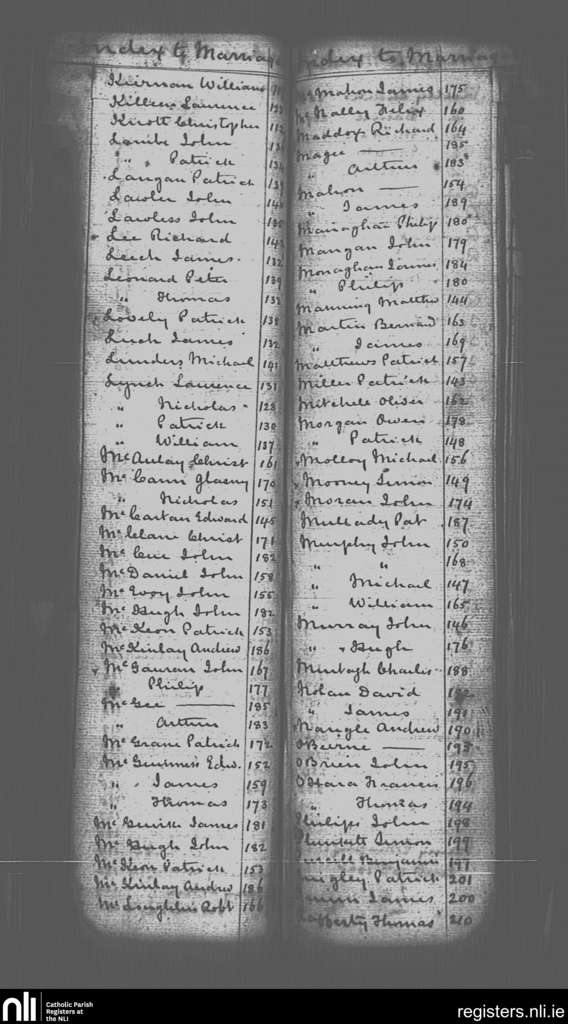 Index to Marriag
Kiernan William
Killeen Laurence
Knott Christopher 112
Lambe John
" " Patrick 134
Langan Patrick 139
Lawler John 140
Lawless John
Lee Richard
Leech James 132
Leonard Peter 139
" Thomas 132
Lovely Patrick 138
Lynch James 132
Lunders Michael 141
Lynch Laurence 131
" Nicholas 128
" Patrick 130
" William 137
McAulay Christ 161
McCann Glasny 170
" Nicholas 151
McCartan Edward 145
McClane Christ 171
McCue John 182
McDaniel John 158
McEvoy John 155
McHugh John 182
McKeon Patrick 153
McKinlay Andrew 186
McGauran John 167
Philip 177
McGee —— 185
" Arthur 183
McGrane Patrick 172
McGuinness Edw. 152
" James 159
" Thomas 173
McGuirk James 181
McHugh John 182
McKeon Patrick 153
McKinlay Andrew 186
McLoughlin Robt 166
Index to Marriag
McMahon James 175
McNalley Felix 160
Maddox Richard 164
Magee —— 185
" Arthur 183
Mahon —— 154
" James 189
Managhan Philip 180
Mangan John 179
Monaghan James 184
" Philip 180
Manning Matthew 144
Martin Bernard 163
" James 169
Matthews Patrick 157
Miller Patrick 143
Mitchell Oliver 162
Morgan Owen 178
" Patrick 148
Molloy Michael 156
Mooney Simon 149
Moran John 174
Mullady Pat 187
Murphy John 150
" " 168
" Michael 147
" William 165
Murray John 146
" Hugh 176
Murtagh Charles 188
Nolan David
" James 191
Nangle Andrew 190
O'Beirne —— 193
O'Brien John 195
O'Hara Francis 196
" Thomas 194
Philips John 198
Plunkett Simon 199
Purcell Benjamin 197
Quigley Patrick 201
Quinn James 200
Rafferty Thomas 210
nli
Catholic Parish
Registers at
the NLI
registers.nli.ie